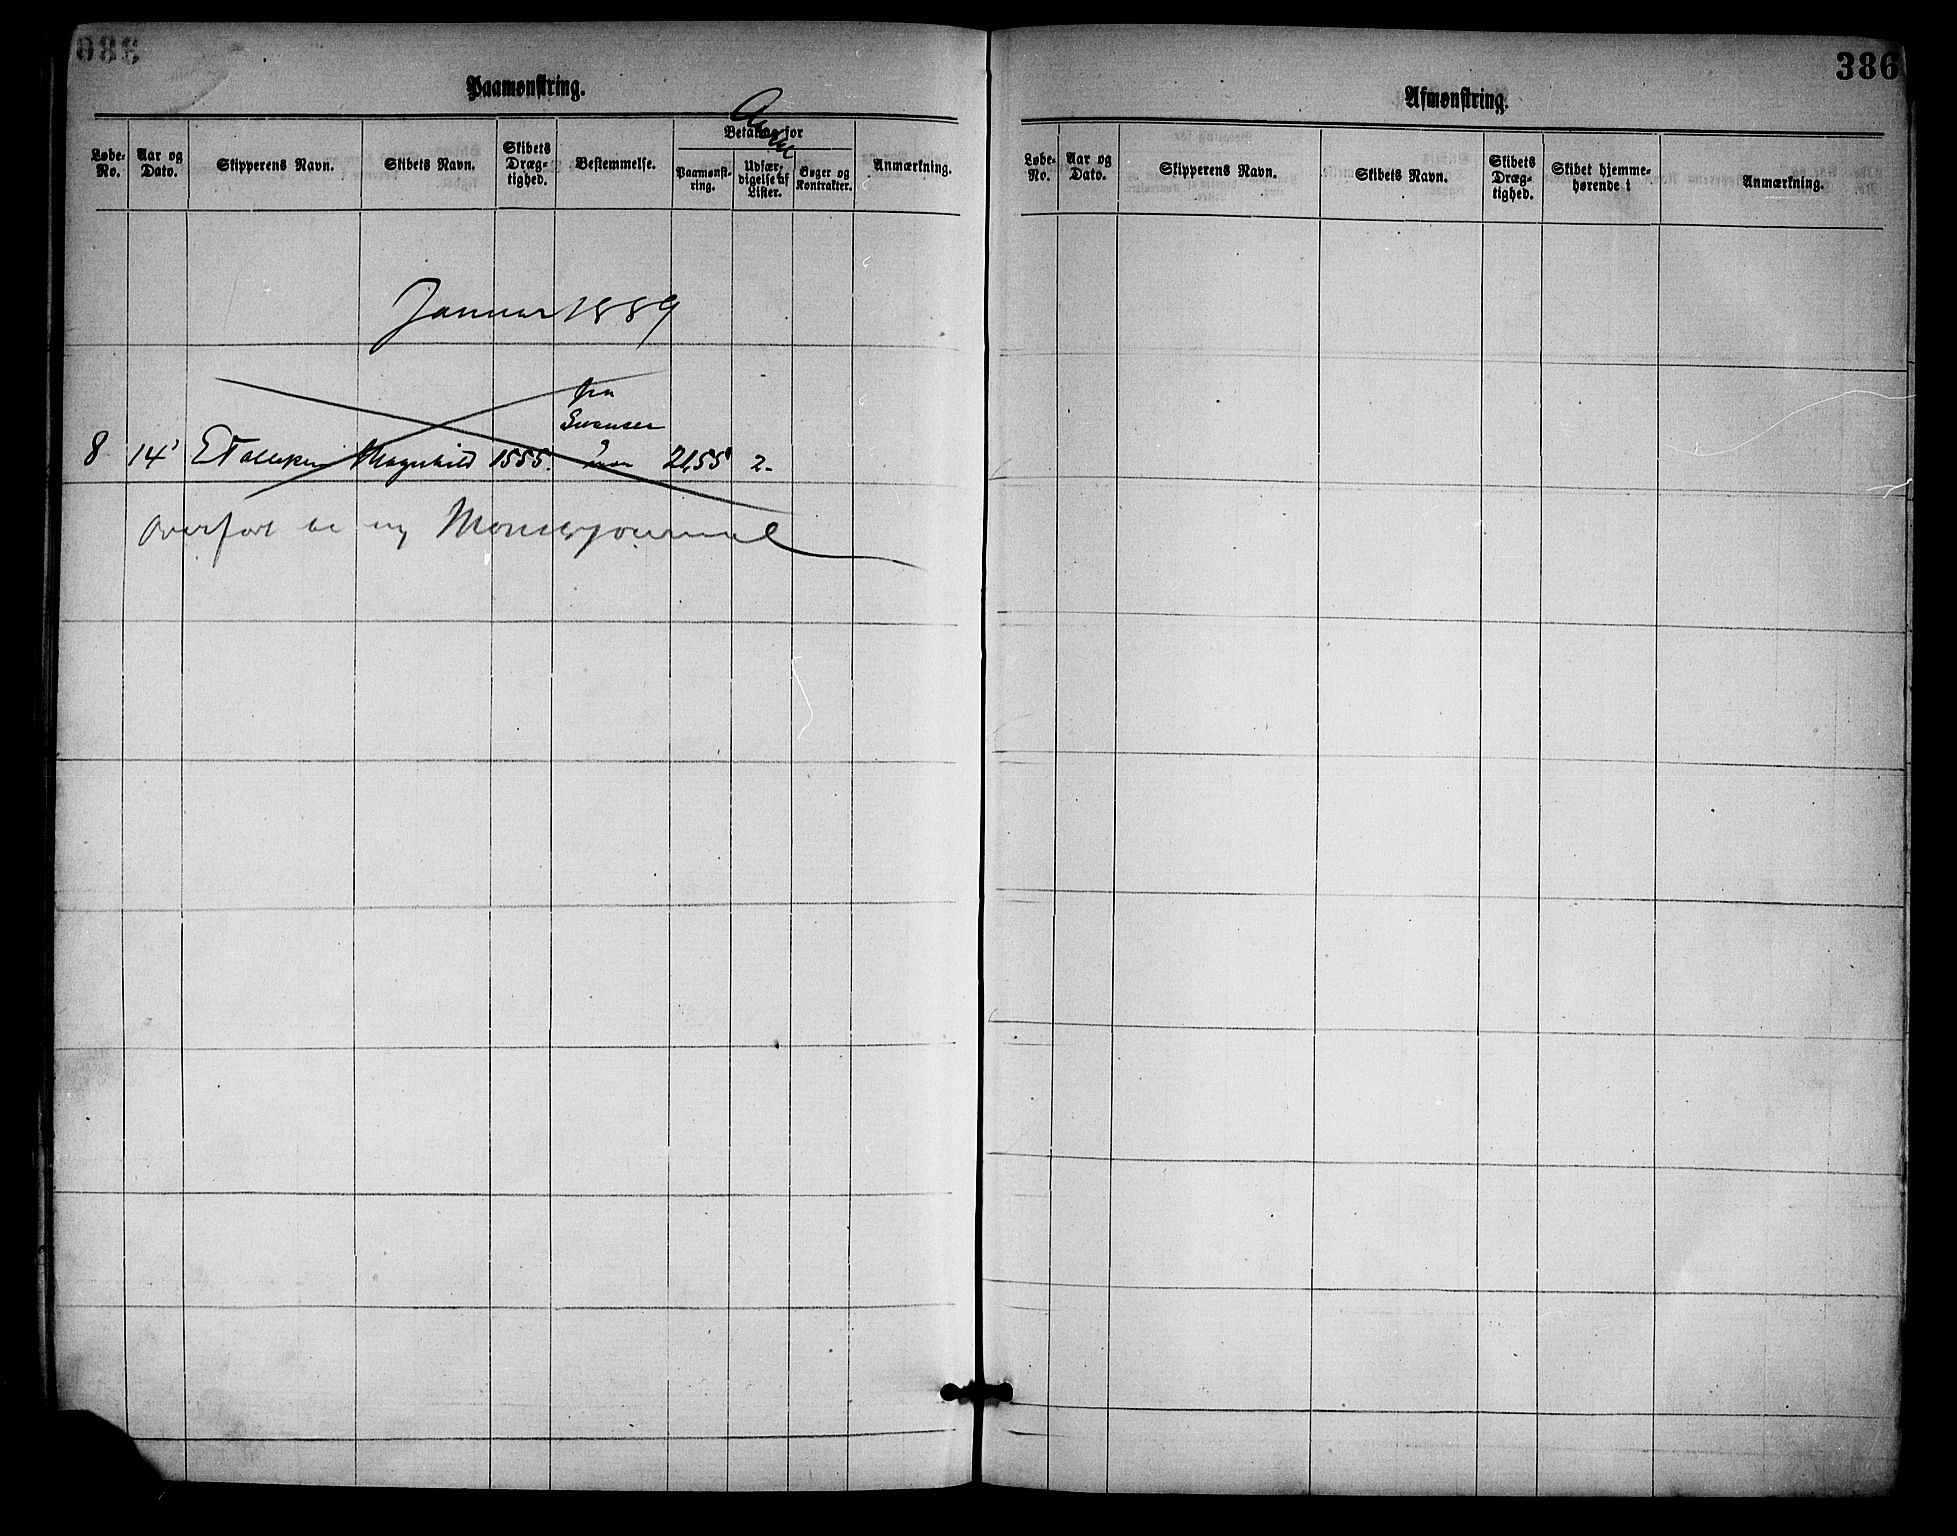 386
Paamønstring.
Betaling for
Løbe-No.
Aar og Dato.
Skipperens Navn.
Skibets Navn.
Skibets Dræg-tighed.
Bestemmelse.
Paamønst-ring.
Udfær-digelse af Lister.
Bøger og Kontrakter.
Anmærkning.
Januar 1889
fra
8 14 Magnhild 1555. 21,55 2-
Overført ny Mønsterjournal
Afmønstring.
Løbe-No.
Aar og Dato.
Skipperens Navn.
Skibets Navn.
Skibets Dræg-tighed.
Skibet hjemme-hørende i
Anmærkning.